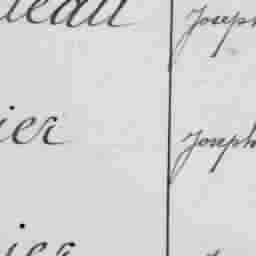 leau Joseph
ier Joseph
ier